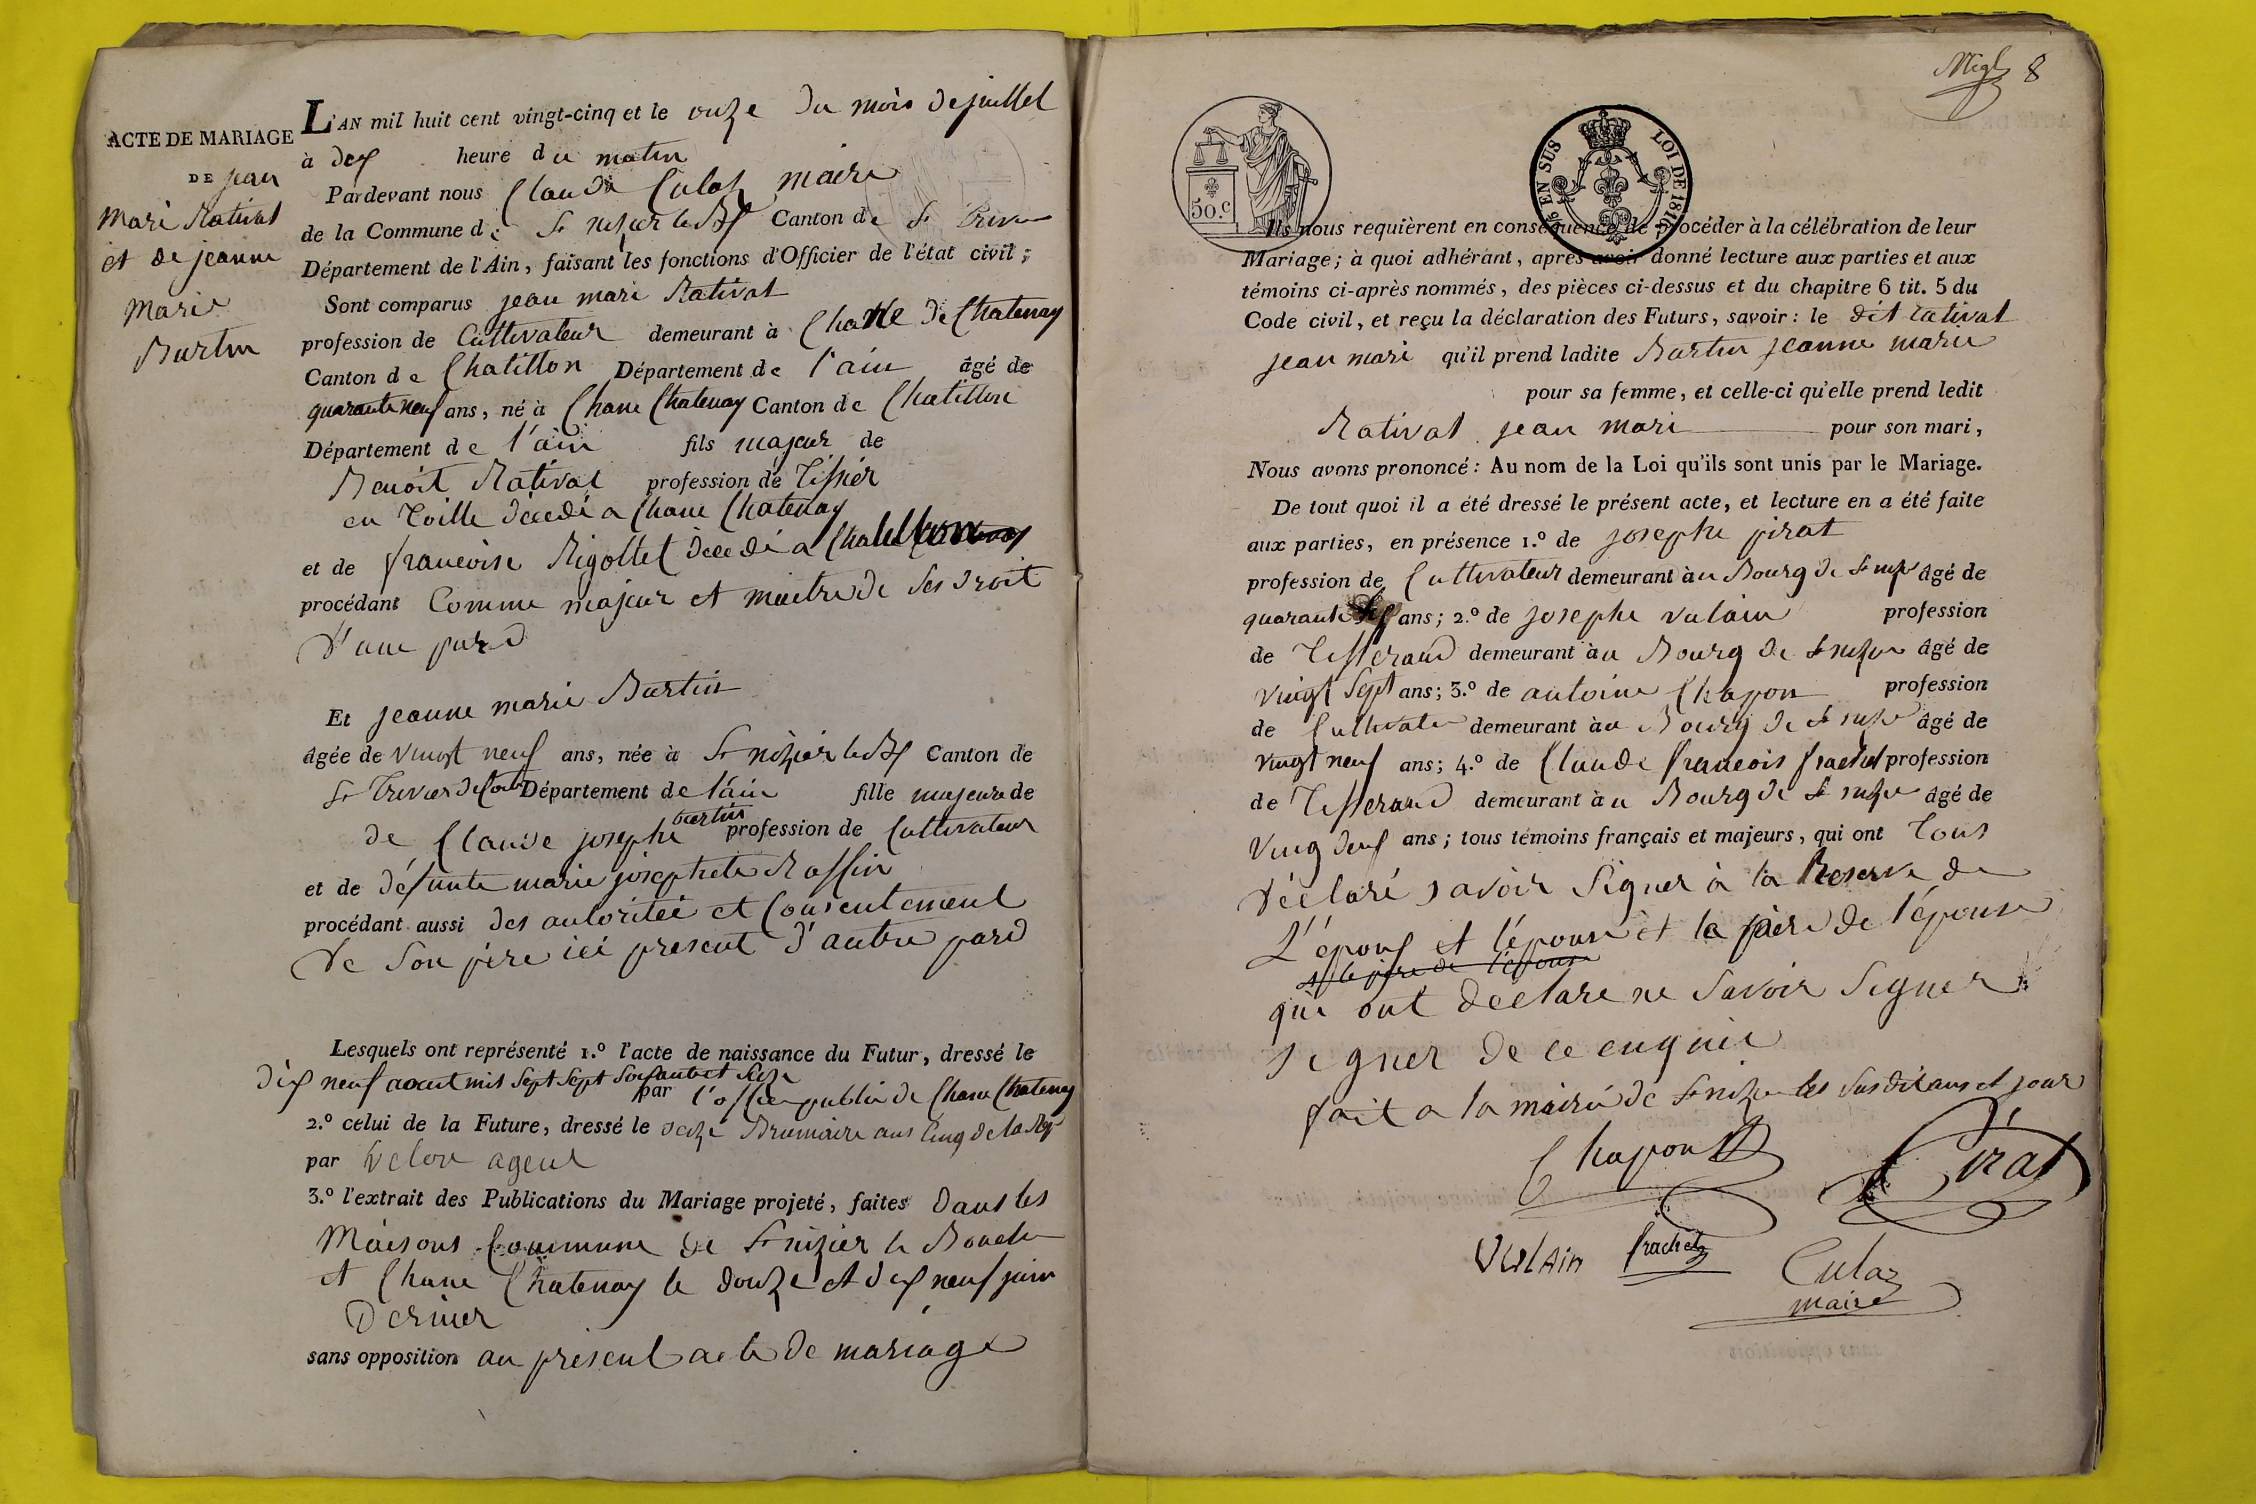 ACTE DE MARIAGE
DE jean
mari Rativat
et de jeanne
Marie
Burtin
L'AN mil huit cent vingt-cinq et le onze du mois de juillet
à dix heure du matin
Pardevant nous Claude Culas maire
de la Commune de St nizier le Bx Canton de St Trivier
Département de l'Ain, faisant les fonctions d'Officier de l'état civil;
Sont comparus jean mari Rativat
profession de Cultivateur demeurant à Chane de Chatenay
Canton de Chatillon Département de l'ain âgé de
quarante neuf ans, né à Chane Chatenay Canton de Chatillon
Département de l'ain fils majeur de
Benoit Rativat profession de Tissier
en Toille décédé a Chane Chatenay
et de francoise Rigollet décédé a Chatillon
procédant Comme majeur et maitre de ses droit
d'une pard
Et jeanne marie Burtin
âgée de vingt neuf ans, née à St nizier le Bx Canton de
St Trivier de Département de l'ain fille majeure de
de Claude josephe burtin profession de Cultivateur
et de défunte marie josephete Rassin
procédant aussi des autoritée et Consentement
de son père icé present d'autre pard
Lesquels ont représenté 1.º l'acte de naissance du Futur, dressé le
dix neuf aout mil sept sept soixante et seize
par l'officier publié de Chane Chatenay
2.º celui de la Future, dressé le seize Brumaire ans Cinq de la Rep
par Velon agent
3.º l'extrait des Publications du Mariage projeté, faites dans les
Maisons Commune de St nizier le Bouchu
et Chane Chatenay le douze et dix neuf juin
Dernier
sans opposition au présent acte de mariage
8
50.C
EN SUS
LOI DE 1816
Ils nous requièrent en conséquence de procéder à la célébration de leur
Mariage; à quoi adhérant, après avoir donné lecture aux parties et aux
témoins ci-après nommés, des pièces ci-dessus et du chapitre 6 tit. 5 du
Code civil, et reçu la déclaration des Futurs, savoir: le dit rativat
jean mari qu'il prend ladite Burtin jeanne marie
pour sa femme, et celle-ci qu'elle prend ledit
Rativat jean mari pour son mari,
Nous avons prononcé: Au nom de la Loi qu'ils sont unis par le Mariage.
De tout quoi il a été dressé le présent acte, et lecture en a été faite
aux parties, en présence 1.º de josephe pirat
profession de Cultivateur demeurant au Bourg de St nizier âgé de
quarante ans; 2.º de josephe vulain profession
de Tisserand demeurant au Bourg de St nizier âgé de
vingt sept ans; 3.º de antoine Chapon profession
de Cultivateur demeurant au Bourg de St nizier âgé de
vingt neuf ans; 4.º de Claude francois frachet profession
de Tisserand demeurant au Bourg de St nizier âgé de
ving deux ans; tous témoins français et majeurs, qui ont Tous
déclaré savoir signer à la Reserve de
L'époux et l'épouse et le père de l'épouse
et le père de l'épouse
qui ont declare ne savoir signer
signer de ce enquie
fait a la mairie de St nizier les susdit ans et jour
Chapon
Pirat
vulAin
frachet
Culaz
maire